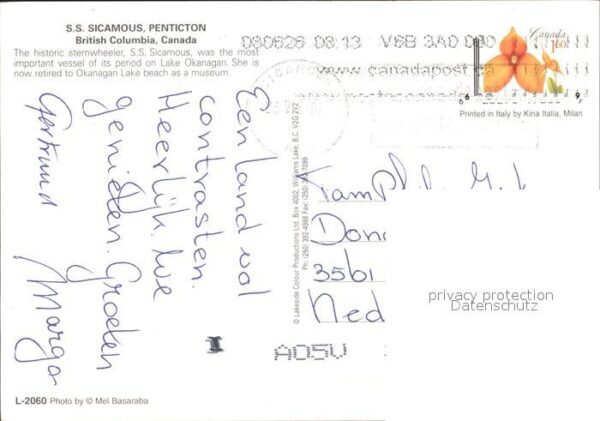 S.S. SICAMOUS, PENTICTON
British Columbia, Canada
The historic sternwheeler, S.S. Sicamous, was the most
important vessel of its period on Lake Okanagan. She is
now retired to Okanagan Lake beach as a museum.
080626 08:13 V6B 3A0
www.canadapost.ca
Canada
Printed in Italy by Kina Italia, Milan
Een land vol
contrasten.
Heerlijk. We
genieten. Groeten
Gertrund Margo
© Lakeside Colour Productions Ltd. Box 4002, Williams Lake, B.C. V2G 2V2
Ph: (250) 392-4988 Fax: (250)
3561
Ned
privacy protection
Datenschutz
A05V
L-2060 Photo by © Mel Basaraba